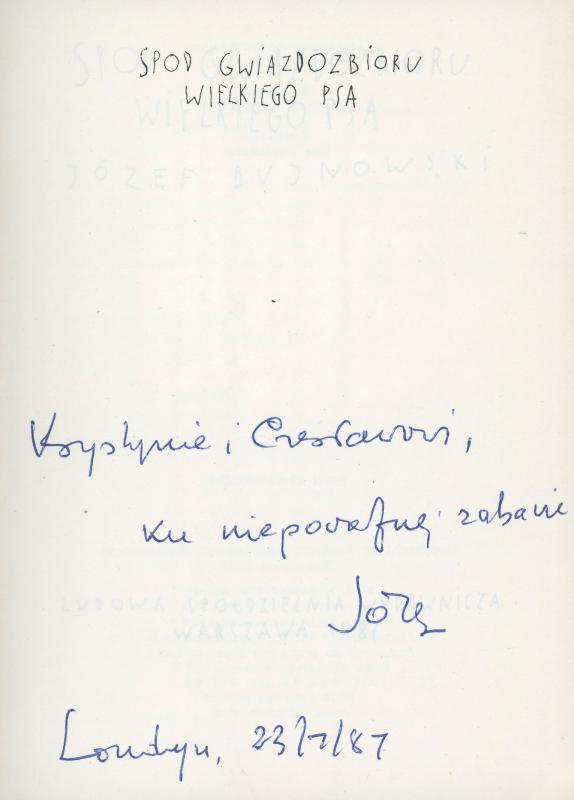 SPOD GWIAZDOZBIORU
WIELKIEGO PSA
SPOD GWIAZDOZBIORU
WIELKIEGO PSA
JÓZEF BUJNOWSKI
Krystynie i Czesławowi,
ku niepoważnej zabawie
LUDOWA SPÓŁDZIELNIA WYDAWNICZA
WARSZAWA 1987
Józef
Londyn, 23/7/87